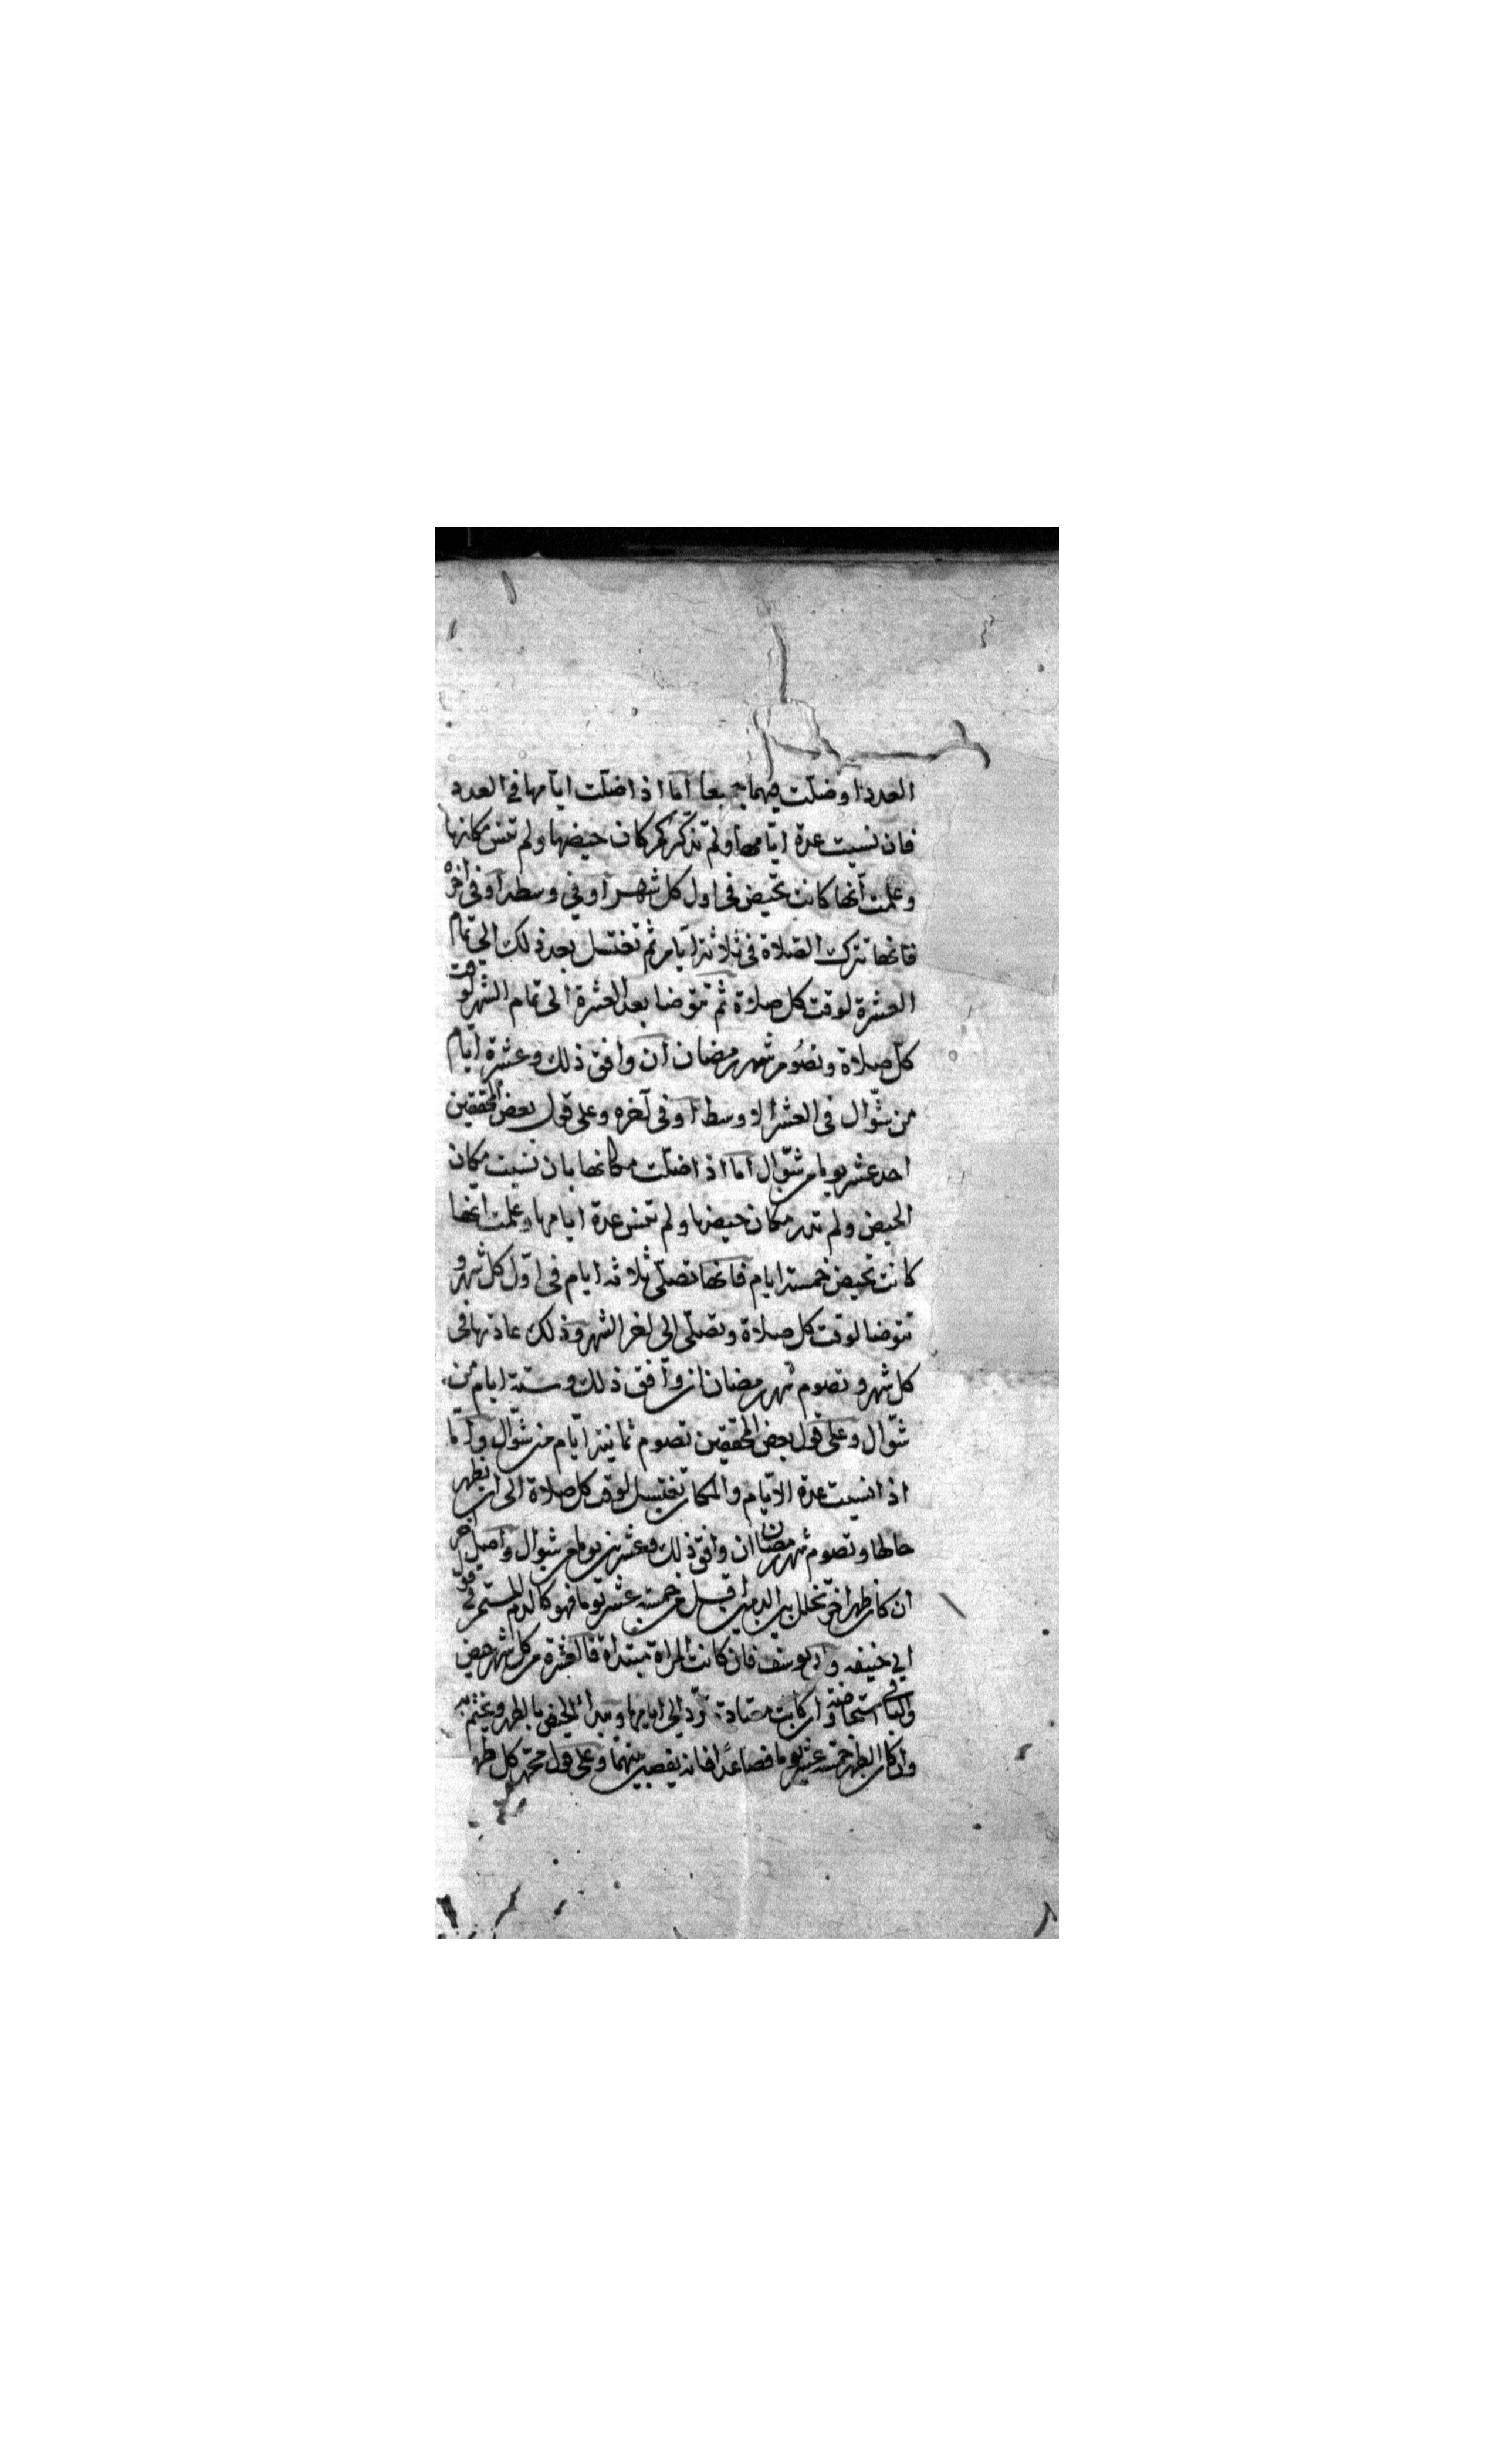 العدد او ضلت فيهما جميعا اما اذا ضلت ايامها في العدد
فان نسيت عدة ايامها ولم تذكر كم كان حيضها ولم تنس مكانها
وعلمت انها كانت تحيض في اول كل شهر او في وسطه او في اخره
فانها تترك الصلاة في ثلاثة ايام ثم تغتسل بعد ذلك الى تمام
العشرة لوقت كل صلاة ثم تتوضا بعد العشرة الى تمام الشهر لوقت
كل صلاة وتصوم شهر رمضان ان وافق ذلك وعشرة ايام
من شوال في العشر الاوسط او في آخره وعلى قول بعض المحققين
احد عشر يوما من شوال اما اذا ضلت مكانها بان نسيت مكان
الحيض ولم تدر مكان حيضها ولم تنس عدة ايامها وعلمت انها
كانت تحيض خمسة ايام فانها تصلي ثلاثة ايام في اول كل شهر و
تتوضا لوقت كل صلاة وتصلي الى اخر الشهر وذلك عادتها في
كل شهر وتصوم شهر رمضان ان وافق ذلك وستة ايام من
شوال وعلى قول بعض المحققين تصوم ثمانية ايام من شوال واما
اذا نسيت عدة الايام والمكان تغتسل لوقت كل صلاة الى ان يظهر
حالها وتصوم شهر رمضان ان وافق ذلك وعشرين يوما من شوال واصل اخر
ان كان طهرا تخلل بين الدمين اقل من خمسة عشر يوما فهو كالدم المستمر في قول
ابي حنيفه وابي يوسف فان كانت المراة مبتداة فالعشرة من كل شهر حيض
والباقي استحاضة وان كانت معتادة ترد الى ايامها ويبدا الحيض بالطهر ويختم به
وان كان الطهر خمسة عشر يوما فصاعدا فانه يفصل بينهما وعلى قول محمد كل طهر